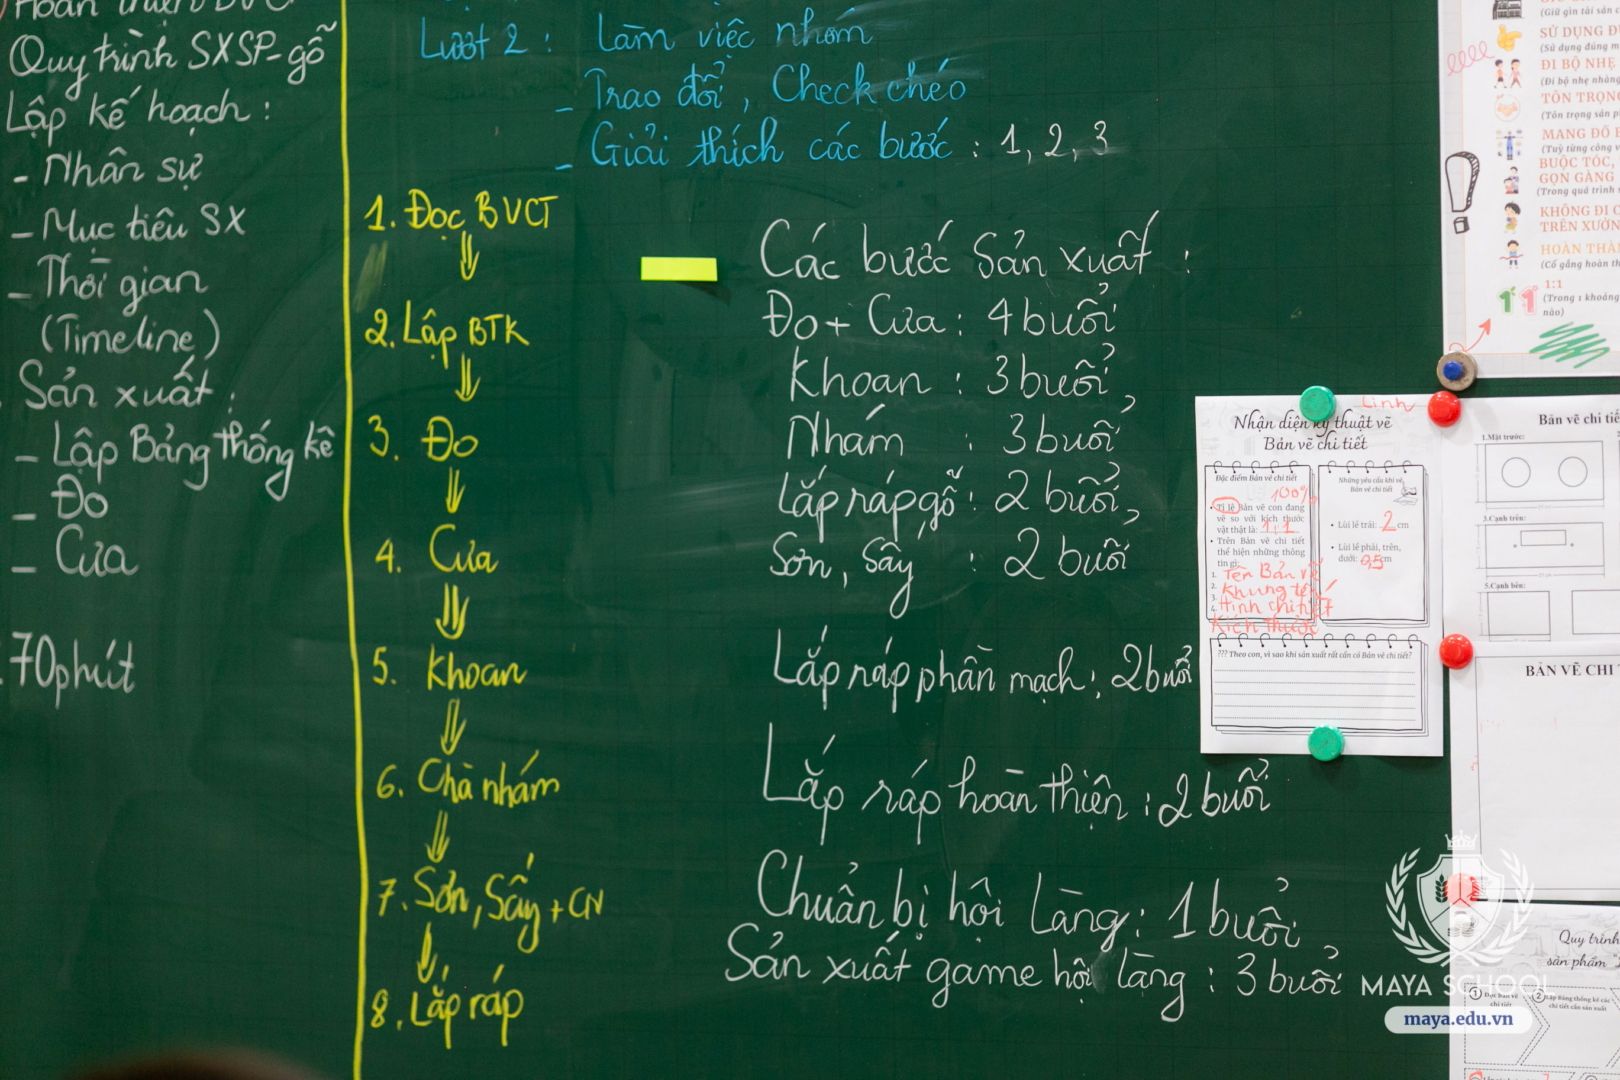 Quy trình SXSP-gỗ
Lập kế hoạch :
- Nhân sự
- Mục tiêu SX
- Thời gian
(Timeline)
Sản xuất :
- Lập Bảng thống kê
- Đo
- Cưa
70phút
Lượt 2 : Làm việc nhóm
- Trao đổi, Check chéo
- Giải thích các bước : 1, 2, 3
1. Đọc BVCT
2. Lập BTK
3. Đo
4. Cưa
5. Khoan
6. Chà nhám
7. Sơn, Sấy + CN
8. Lắp ráp
Các bước Sản xuất :
Đo + Cưa : 4 buổi
Khoan : 3 buổi,
Nhám : 3 buổi
Lắp ráp gỗ : 2 buổi,
Sơn, Sấy : 2 buổi
Lắp ráp phần mạch : 2 buổi
Lắp ráp hoàn thiện : 2 buổi
Chuẩn bị hội Làng : 1 buổi,
Sản xuất game hội làng : 3 buổi
SỬ DỤNG
ĐI BỘ NHẸ
(Đi bộ nhẹ nhàng
TÔN TRỌNG
(Tôn trọng sản
MANG ĐỒ
BUỘC TÓC,
GỌN GÀNG
(Trong quá trình
KHÔNG ĐI
TRÊN XƯỞNG
HOÀN THÀNH
(Cố gắng hoàn
1:1
(Trong 1 khoảng
nào)
Linh
Nhận diện kỹ thuật vẽ
Bản vẽ chi tiết
Đặc điểm Bản vẽ chi tiết
100%
• Tỉ lệ Bản vẽ con đang
vẽ so với kích thước
vật thật là: 1:1
• Trên Bản vẽ chi tiết
thể hiện những thông
tin gì:
1. Tên Bản vẽ
2. Khung tên
3.
4. Hình chi tiết
Kích thước
Những yêu cầu khi vẽ
Bản vẽ chi tiết
• Lùi lề trái: 2 cm
• Lùi lề phải, trên,
dưới: 0,5 cm
??? Theo con, vì sao khi sản xuất rất cần có Bản vẽ chi tiết?
Bản vẽ chi
1.Mặt trước:
3.Cạnh trên:
5.Cạnh bên:
BẢN VẼ CHI
Quy trình
sản phẩm
1 Đọc Bản vẽ
chi tiết
2 Lập Bảng thống kê các
chi tiết cần sản xuất
MAYA SCHOOL
maya.edu.vn